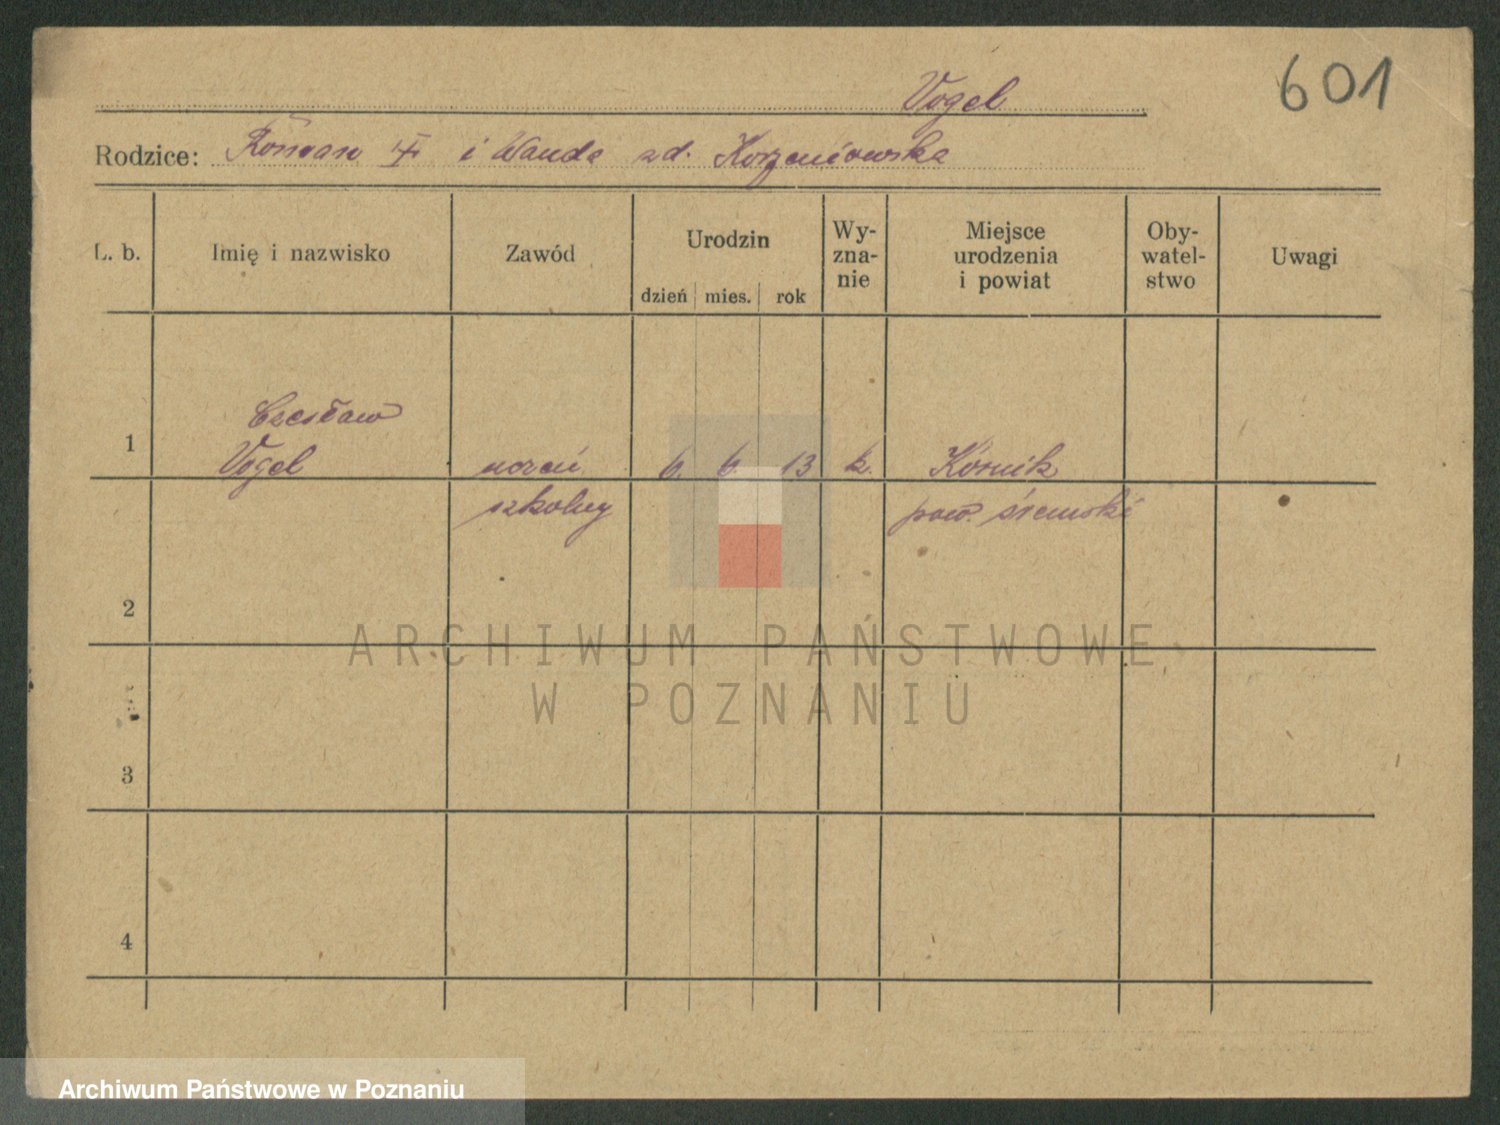 Vogel 601
Rodzice: Roman i Wanda zd. Korzeniowska
L. b. Imię i nazwisko Zawód Urodzin dzień mies. rok Wy-zna-nie Miejsce urodzenia i powiat Oby-watel-stwo Uwagi
Czesław
1 Vogel uczeń 6. 6. 13 k. Kórnik
szkolny pow. śremski
2
ARCHIWUM PAŃSTWOWE
W POZNANIU
3
4
Archiwum Państwowe w Poznaniu